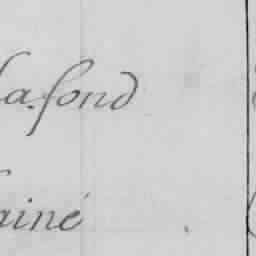 La.fond
ainé